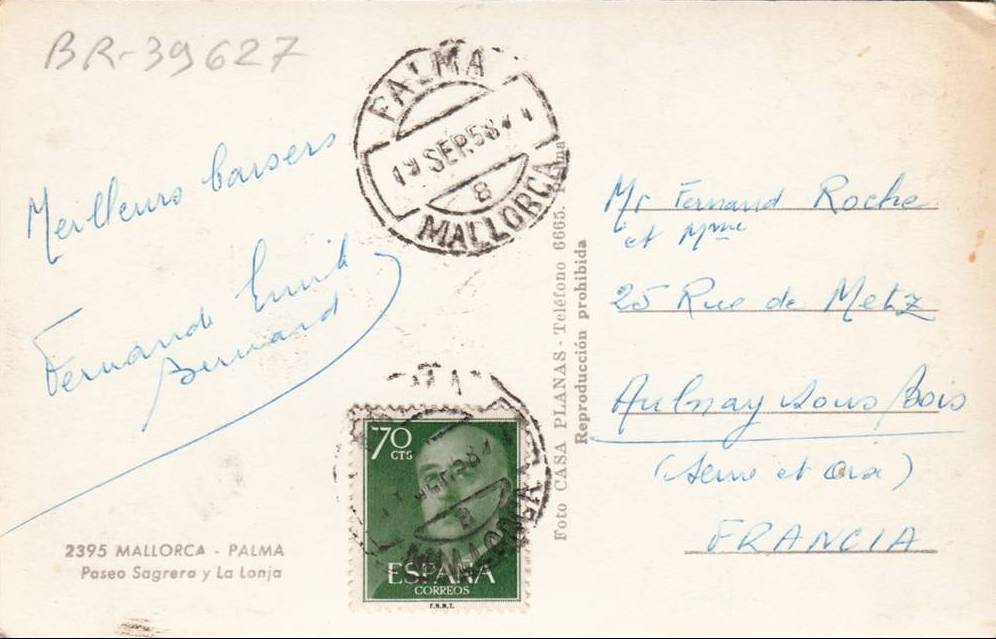 BR-39627
PALMA
19 SEP.58
8
MALLORCA
Meilleurs baisers
Fernande Emile
Bernard
2395 MALLORCA - PALMA
Paseo Sagrera y La Lonja
70
CTS
ESPAÑA
CORREOS
F.N.M.T.
MALLORCA
Foto CASA PLANAS - Teléfono 6665. Palma
Reproducción prohibida
Mr Fernand Roche
et Mme
25 Rue de Metz
Aulnay sous Bois
(Seine et Oise)
FRANCIA